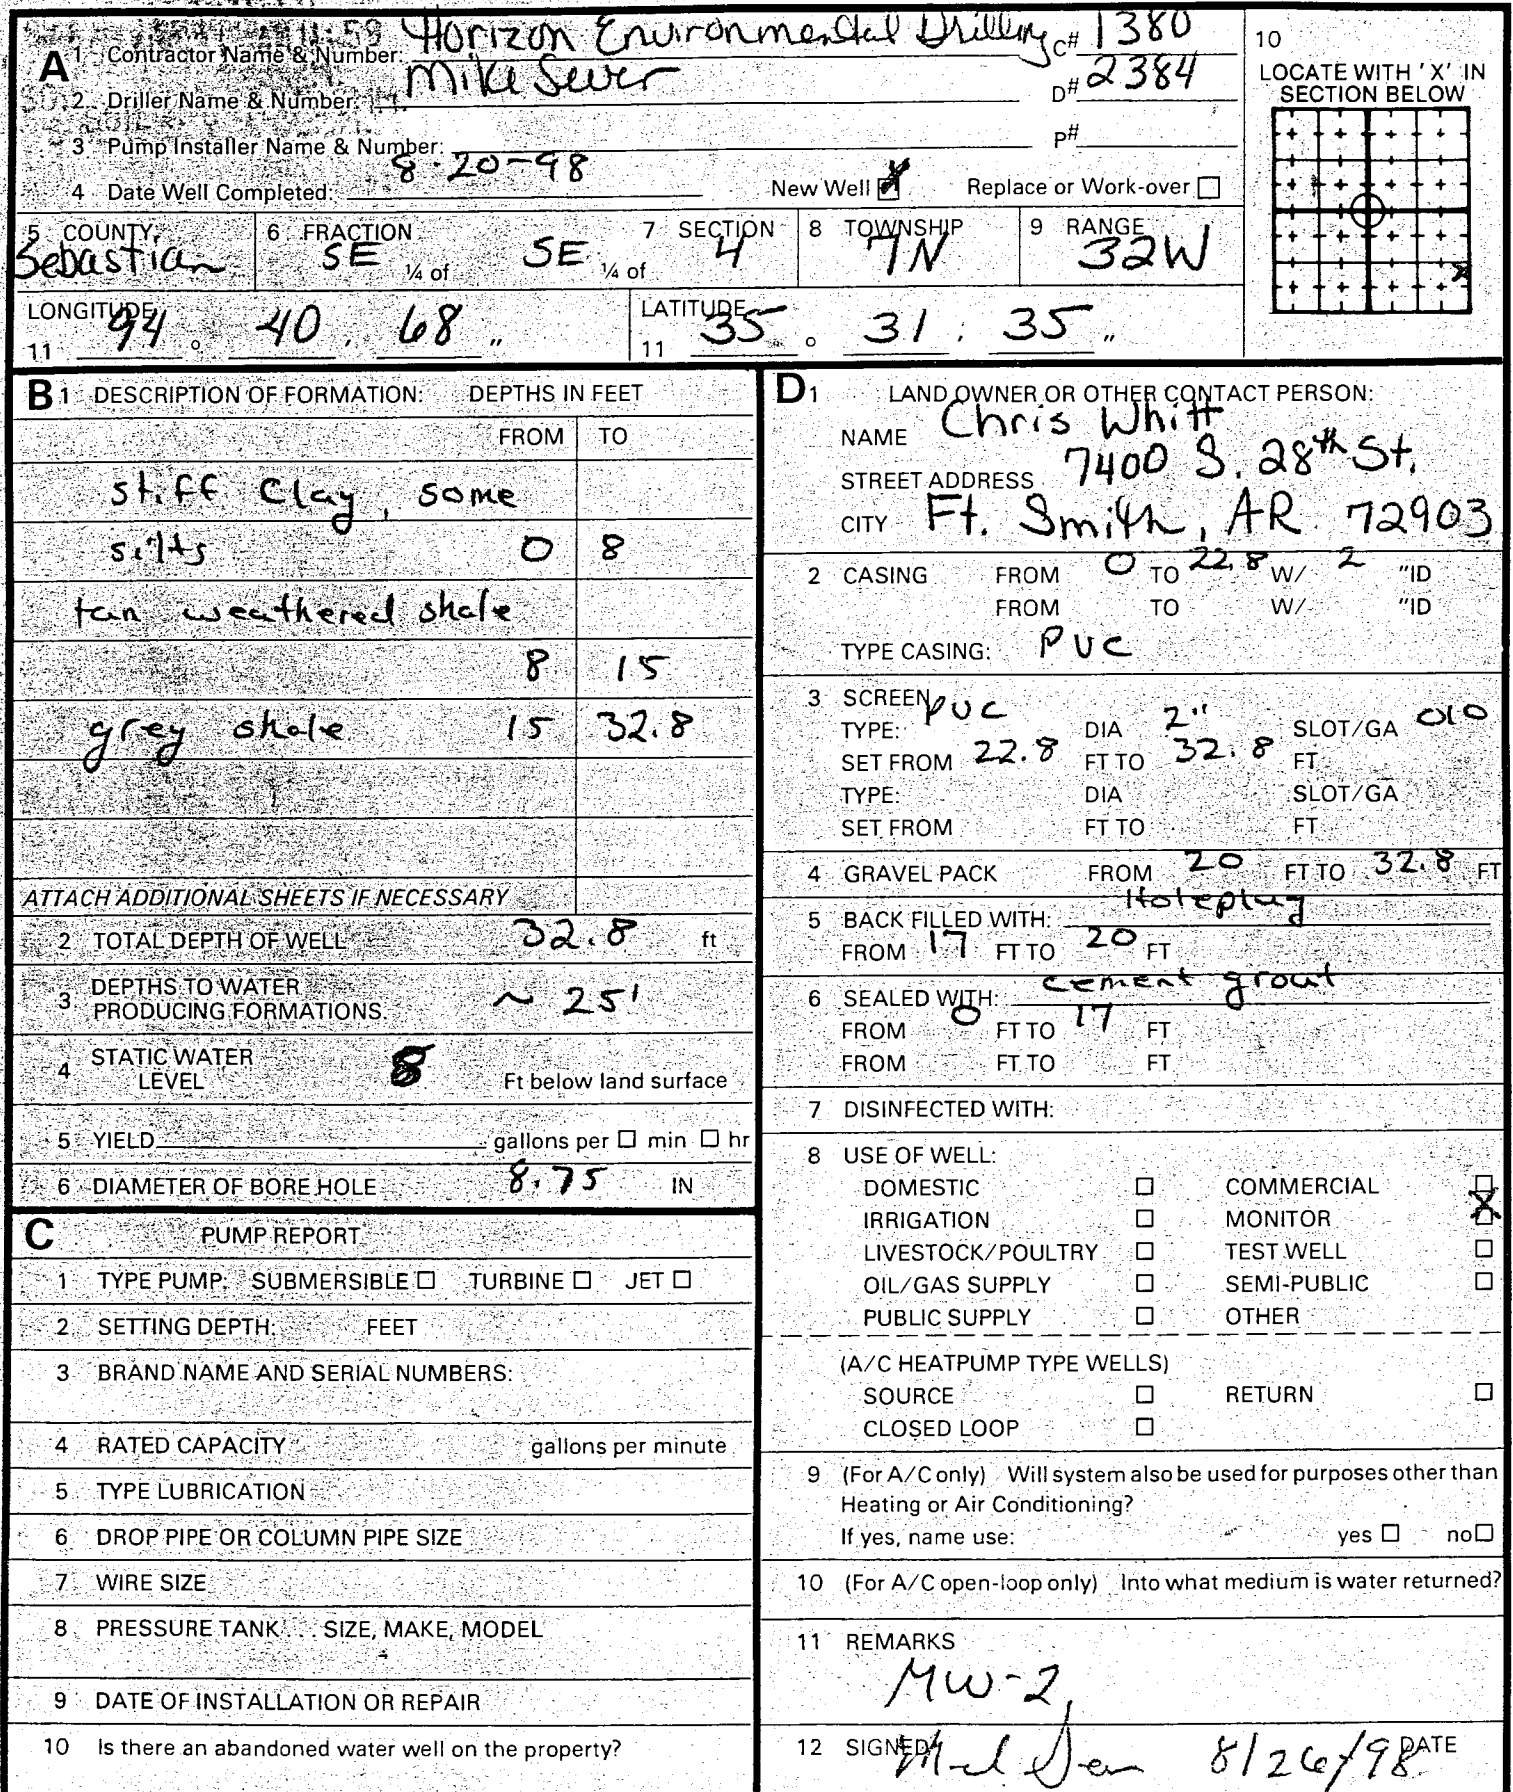 A 1 Contractor Name & Number: Horizon Environmental Drilling C# 1380
2 Driller Name & Number: Mike Sever D# 2384
3 Pump Installer Name & Number: P#
4 Date Well Completed: 8-20-98 New Well X Replace or Work-over
10
LOCATE WITH 'X' IN
SECTION BELOW
X
5 COUNTY Sebastian 6 FRACTION SE ¼ of SE ¼ of 7 SECTION 4 8 TOWNSHIP 7N 9 RANGE 32W
LONGITUDE 11 94 ° 40 ' 68 " LATITUDE 11 35 ° 31 ' 35 "
B 1 DESCRIPTION OF FORMATION: DEPTHS IN FEET
FROM TO
stiff Clay, some
silts 0 8
tan weathered shale
8 15
grey shale 15 32.8
ATTACH ADDITIONAL SHEETS IF NECESSARY
2 TOTAL DEPTH OF WELL 32.8 ft
3 DEPTHS TO WATER
PRODUCING FORMATIONS. ~ 25'
4 STATIC WATER
LEVEL 8 Ft below land surface
5 YIELD gallons per min hr
6 DIAMETER OF BORE HOLE 8.75 IN
C PUMP REPORT
1 TYPE PUMP: SUBMERSIBLE TURBINE JET
2 SETTING DEPTH: FEET
3 BRAND NAME AND SERIAL NUMBERS:
4 RATED CAPACITY gallons per minute
5 TYPE LUBRICATION
6 DROP PIPE OR COLUMN PIPE SIZE
7 WIRE SIZE
8 PRESSURE TANK . . . SIZE, MAKE, MODEL
9 DATE OF INSTALLATION OR REPAIR
10 Is there an abandoned water well on the property?
D 1 LAND OWNER OR OTHER CONTACT PERSON:
NAME Chris Whitt
STREET ADDRESS 7400 S. 28th St.
CITY Ft. Smith, AR 72903
2 CASING FROM 0 TO 22.8 W/ 2 "ID
FROM TO W/ "ID
TYPE CASING: PVC
3 SCREEN
TYPE: PVC DIA 2" SLOT/GA 010
SET FROM 22.8 FT TO 32.8 FT
TYPE: DIA SLOT/GA
SET FROM FT TO FT
4 GRAVEL PACK FROM 20 FT TO 32.8 FT
5 BACK FILLED WITH: Holeplug
FROM 17 FT TO 20 FT
6 SEALED WITH: cement grout
FROM 0 FT TO 17 FT
FROM FT TO FT
7 DISINFECTED WITH:
8 USE OF WELL:
DOMESTIC COMMERCIAL
IRRIGATION MONITOR X
LIVESTOCK/POULTRY TEST WELL
OIL/GAS SUPPLY SEMI-PUBLIC
PUBLIC SUPPLY OTHER
(A/C HEATPUMP TYPE WELLS)
SOURCE RETURN
CLOSED LOOP
9 (For A/C only) Will system also be used for purposes other than
Heating or Air Conditioning?
If yes, name use: yes no
10 (For A/C open-loop only) Into what medium is water returned?
11 REMARKS
MW-2
12 SIGNED 8/26/98 DATE